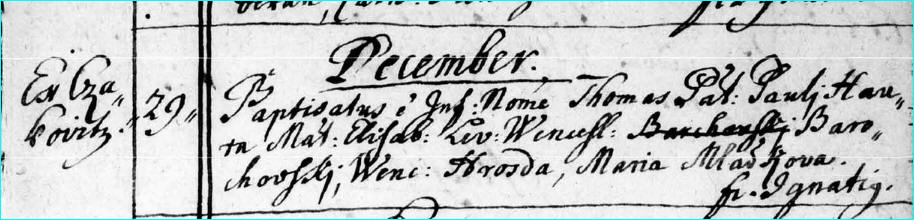 December.
Ex Cza„
kovitz.
29„
Baptisatus ē Inf: Nomē Thomas Pat: Paulj Hau„
ta Mat: Elisab: Lev: Wencesl: Barchovskj Baro„
chovskj, Wenc: Hrosda, Maria Mladkova.
fr. Ignatiq.